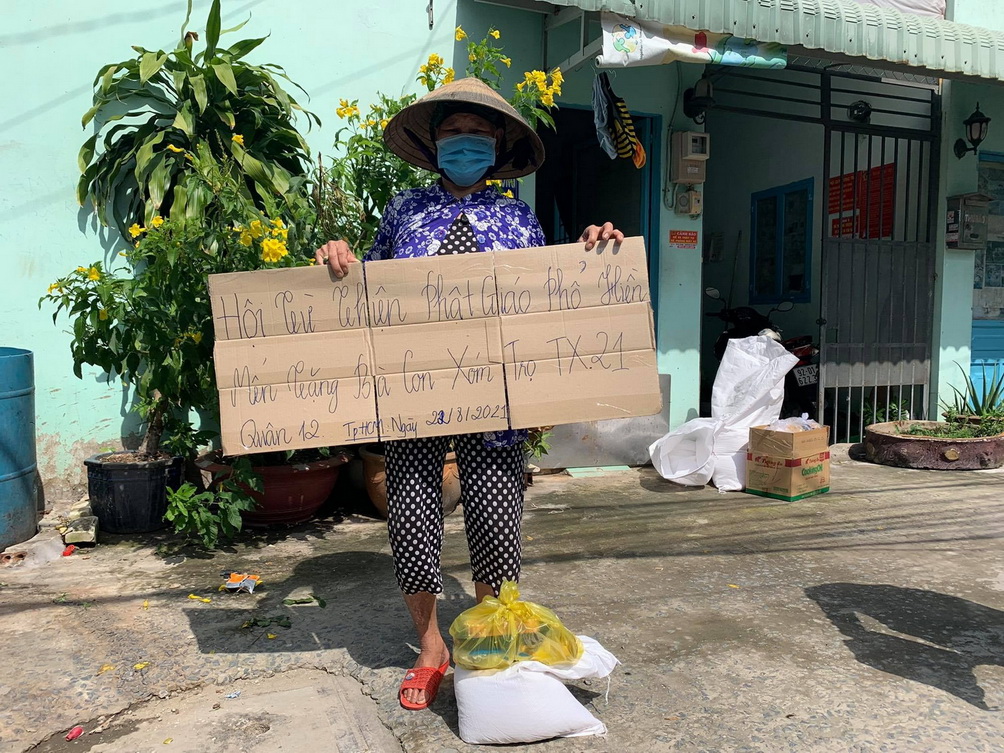 Hội Từ Thiện Phật Giáo Phổ Hiền
Mến Tặng Bà Con Xóm Trọ TX.21
Quân 12. TpHCM. Ngày 22/8/2021